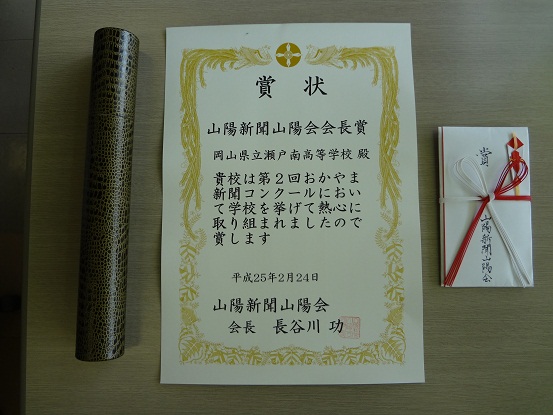 賞状
山陽新聞山陽会会長賞
岡山県立瀬戸南高等学校 殿
貴校は第2回おかやま
新聞コンクールにおい
て学校を挙げて熱心に
取り組まれましたので
賞します
平成25年2月24日
山陽新聞山陽会
会長 長谷川 功
賞
山陽新聞山陽会